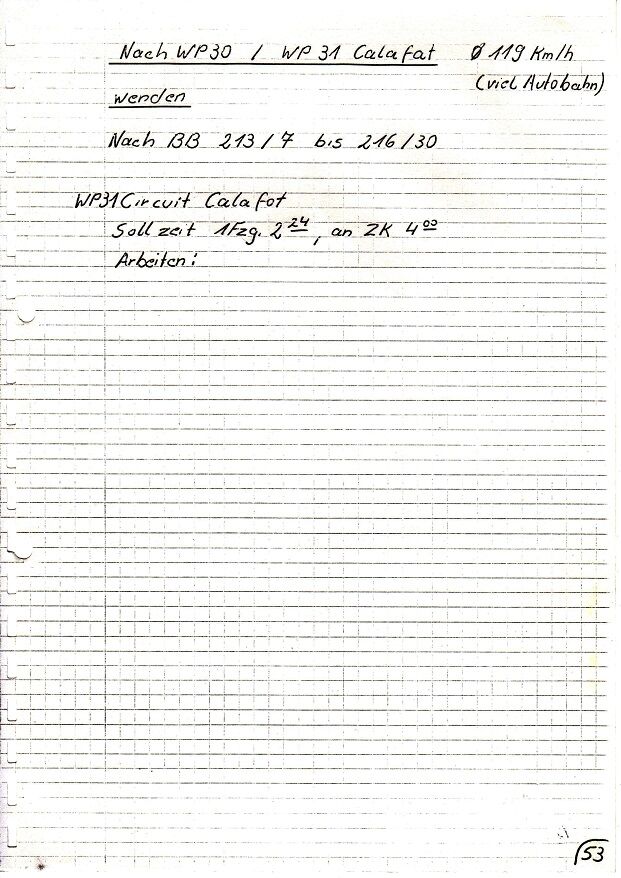 Nach WP30 / WP 31 Calafat Ø 119 Km/h
(viel Autobahn)
wenden
Nach BB 213/7 bis 216/30
WP31 Circuit Calafat
Sollzeit 1Fzg. 2 24, an ZK 4 00
Arbeiten:
53